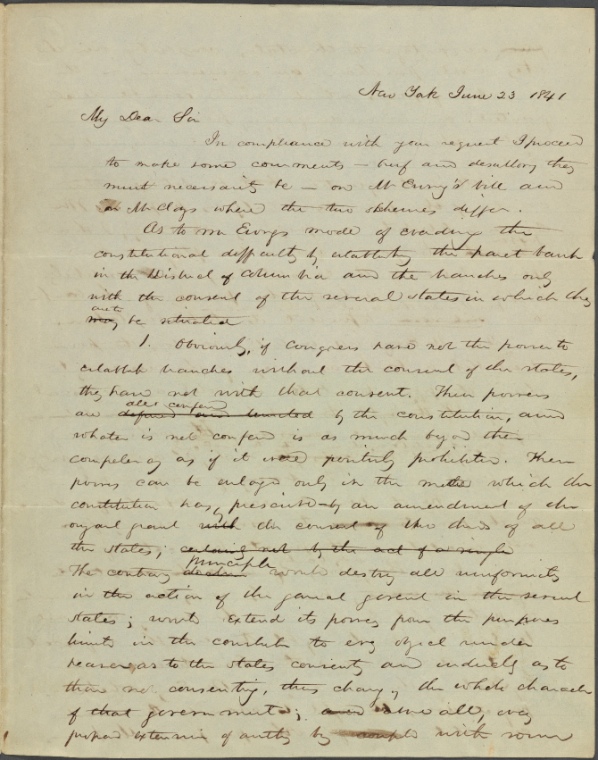 New York June 23 1841
My Dear Sir
In compliance with your request I proceed
to make some comments – brief and desultory they
must necessarily be – on Mr Ewing's bill and
on Mr Clays where the two schemes differ.
As to Mr Ewings mode of evading the
constitutional difficulty by establishing the parent bank
in the District of Columbia and the branches only
with the consent of the several states in which they
are to
may be situated
1. Obviously, if Congress have not the power to
establish branches without the consent of the states,
they have not with that consent. Their powers
all conferred
are defined and limited by the constitution, and
whatever is not conferred is as much beyond their
competency as if it were positively prohibited. Their
powers can be enlarged only in the mode which the
constitution has prescribed – by an amendment of the
original grant with the consent of two thirds of all
the states; certainly not by the act of a single
principle
The contrary would destroy all uniformity
in the action of the general government in the several
states; would extend its powers from the
limits in the constitution to every object under
heaven as to the states consenting and as to
those not consenting, thus changing the whole character
of that government; and above all, every
extension of authority by with some